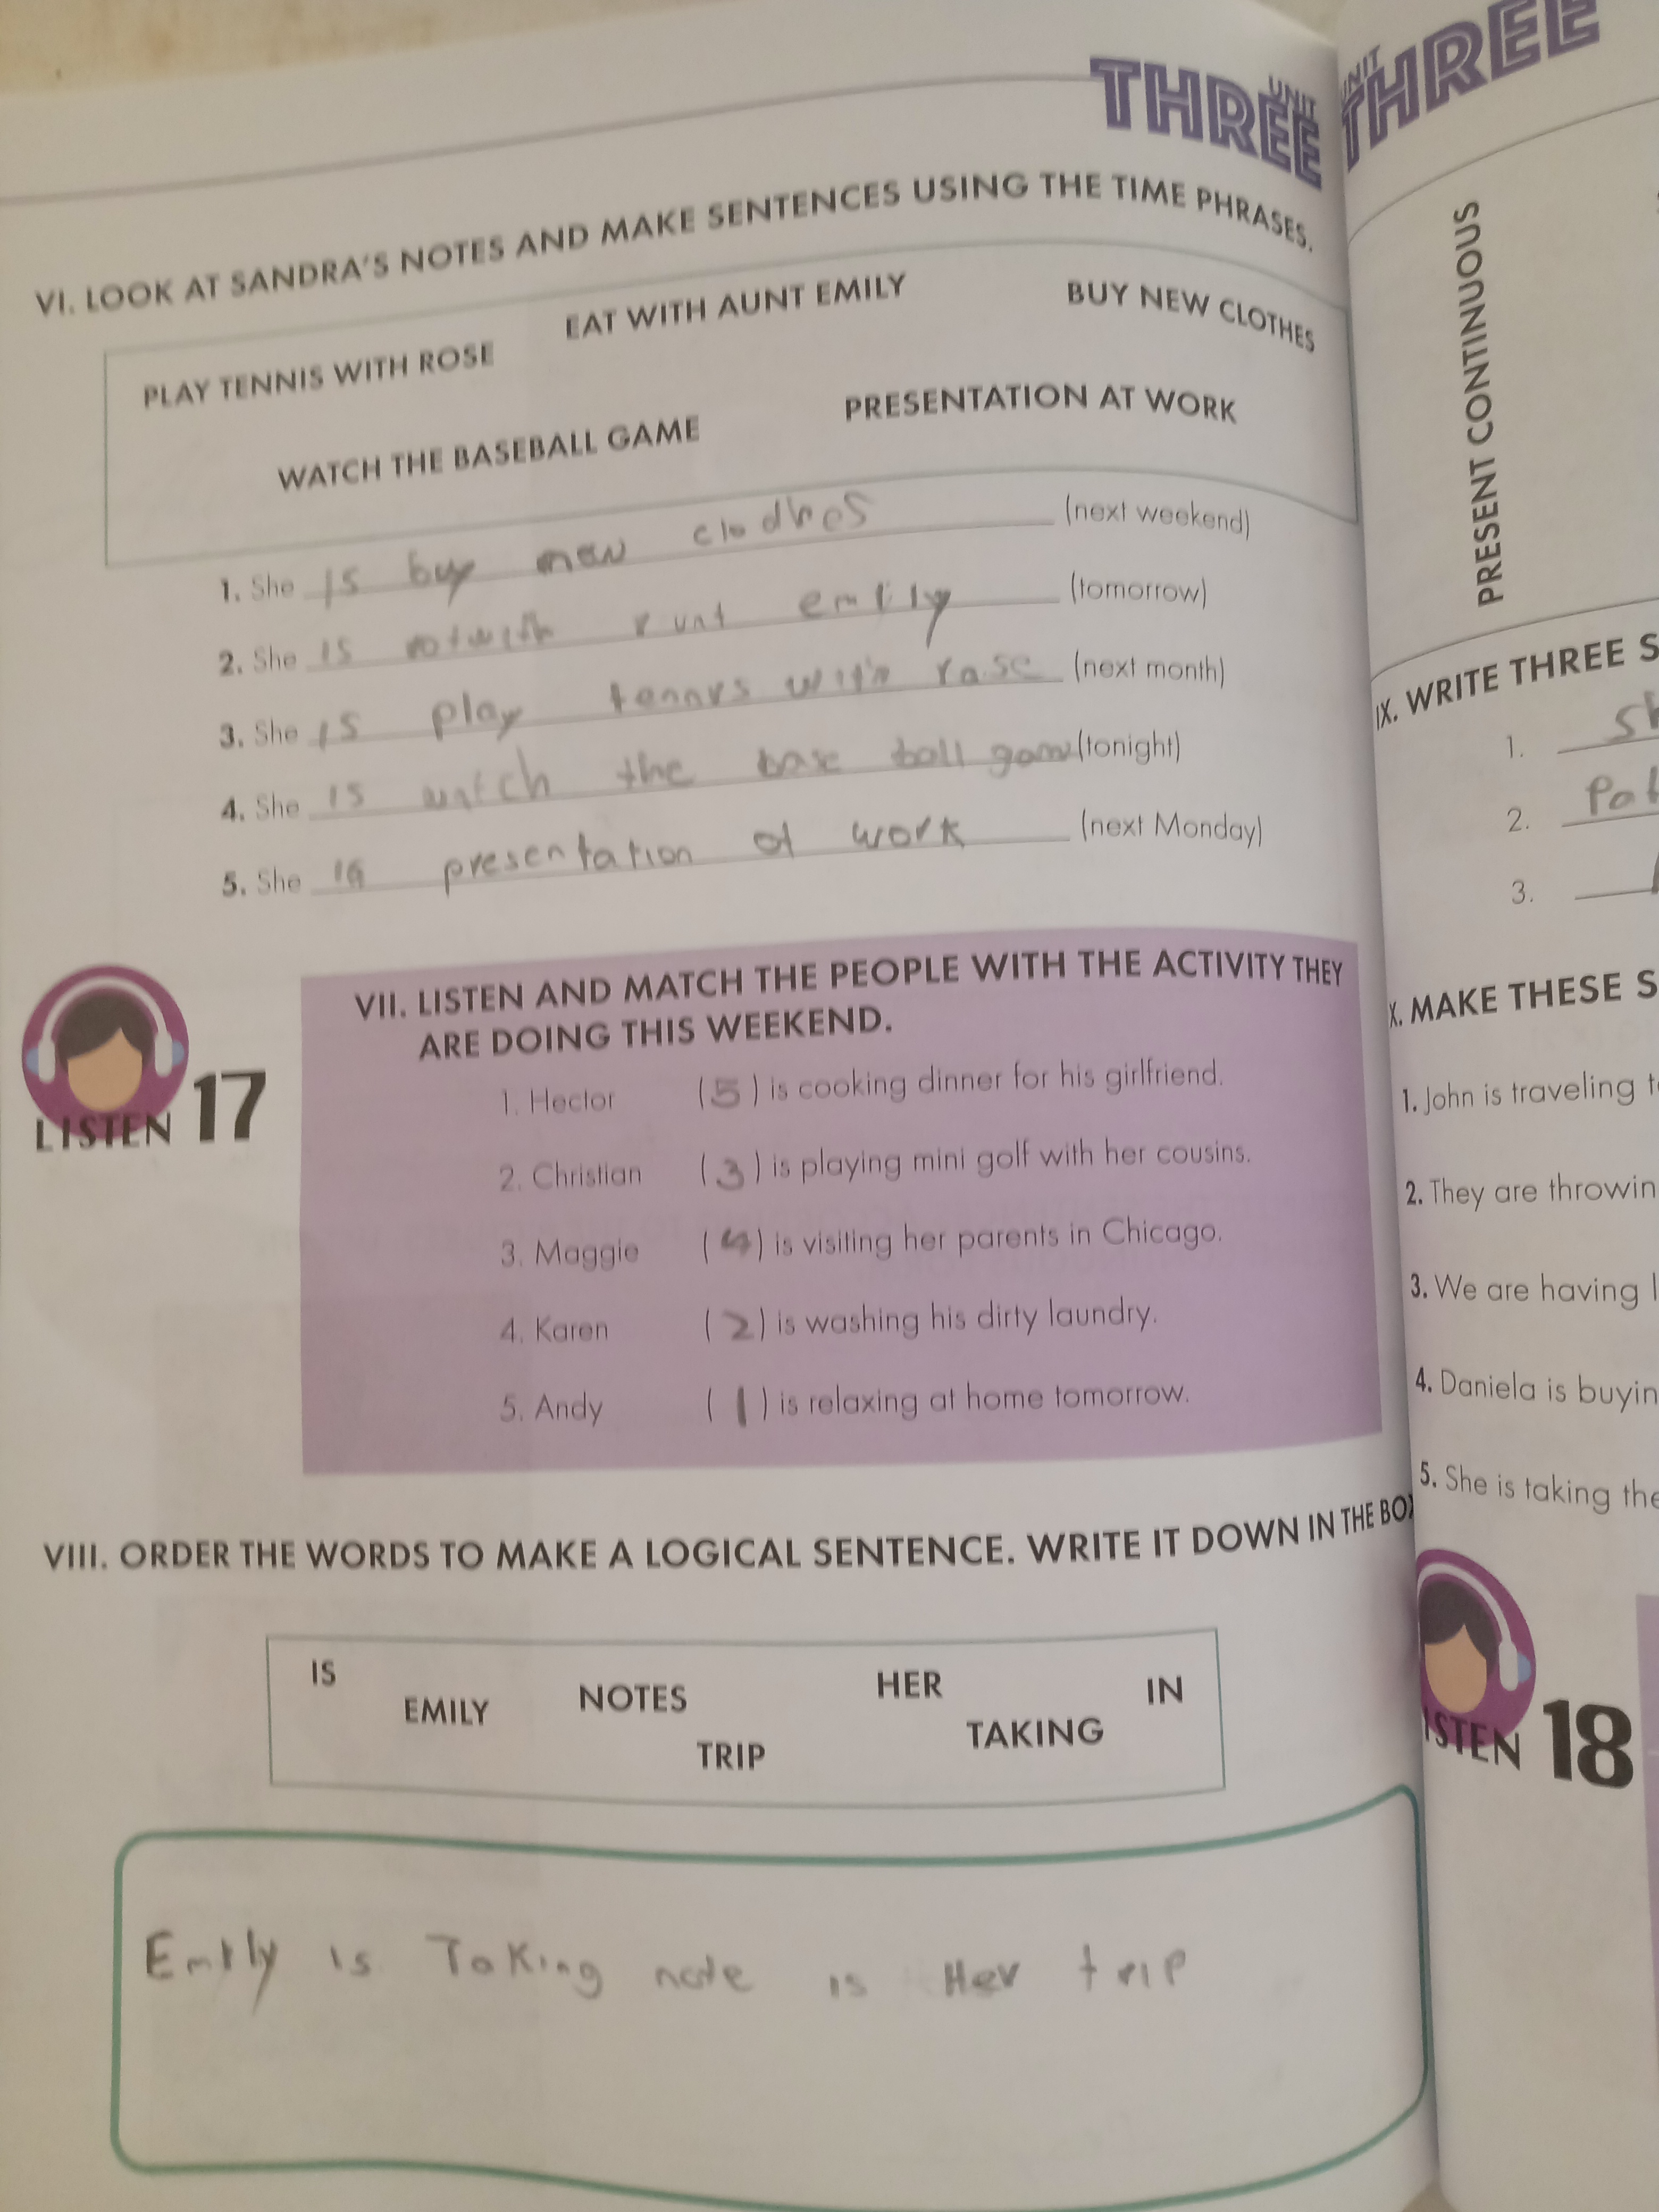 UNIT
THREE
VI. LOOK AT SANDRA'S NOTES AND MAKE SENTENCES USING THE TIME PHRASES.
PLAY TENNIS WITH ROSE
EAT WITH AUNT EMILY
BUY NEW CLOTHES
WATCH THE BASEBALL GAME
PRESENTATION AT WORK
1. She is buy new clodhes (next weekend)
2. She is emily (tomorrow)
3. She is play with rase (next month)
4. She is watch the base ball game (tonight)
5. She is presentation at work (next Monday)
LISTEN 17
VII. LISTEN AND MATCH THE PEOPLE WITH THE ACTIVITY THEY
ARE DOING THIS WEEKEND.
1. Hector (5) is cooking dinner for his girlfriend.
2. Christian (3) is playing mini golf with her cousins.
3. Maggie (4) is visiting her parents in Chicago.
4. Karen (2) is washing his dirty laundry.
5. Andy (1) is relaxing at home tomorrow.
VIII. ORDER THE WORDS TO MAKE A LOGICAL SENTENCE. WRITE IT DOWN IN THE BOX
IS
EMILY
NOTES
TRIP
HER
TAKING
IN
Emily is Taking note is Her trip
UNIT
THREE
PRESENT CONTINUOUS
IX. WRITE THREE S
1. Sh
2. Pat
3.
X. MAKE THESE S
1. John is traveling t
2. They are throwin
3. We are having l
4. Daniela is buyin
5. She is taking the
ISTEN 18